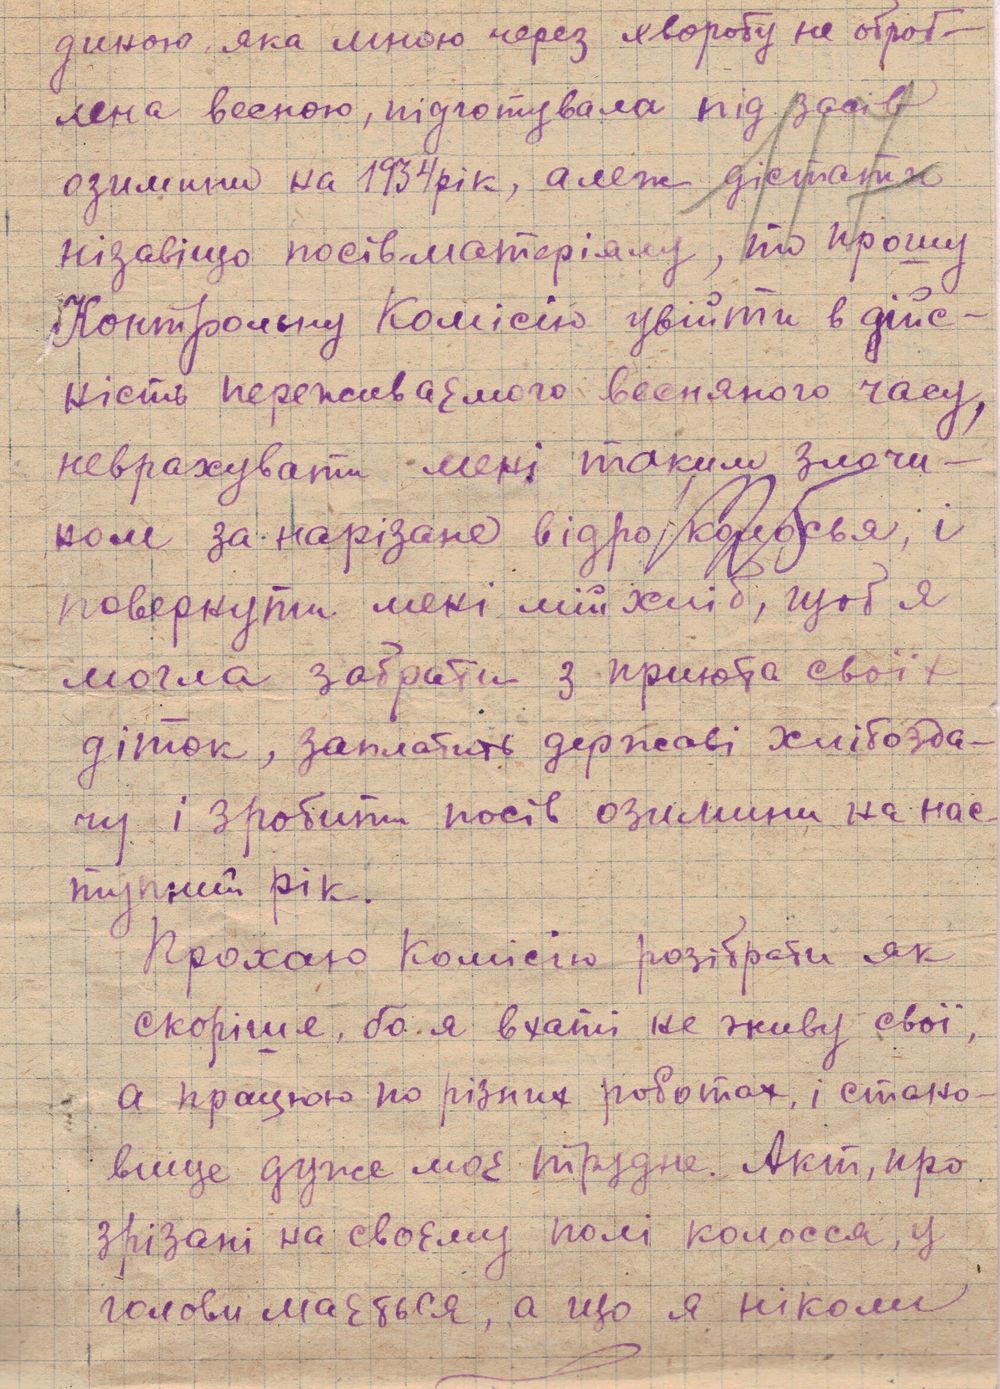 диною, яка мною через хворобу не оброб-
лена весною, підготувала під засів
озимини на 1934 рік, алеж дістати
нізавіщо посівматеріялу, то прошу
Контрольну Комісію увійти в дійс-
ність переживаємого весняного часу,
неврахувати мені таким злочи-
ном за нарізане відро колосья, і
повернути мені мій хліб, щоб я
могла забрати з приюта своїх
діток, заплатить державі хлібозда-
чу і зробити посів озимини на нас-
тупний рік.
Прохаю Комісію розібрати як
скоріше, бо я вхаті не живу свої,
а працюю по різних роботах, і стано-
вище дуже моє трудне. Акт, про
зрізані на своєму полі колосся, у
голови мається, а що я ніколи